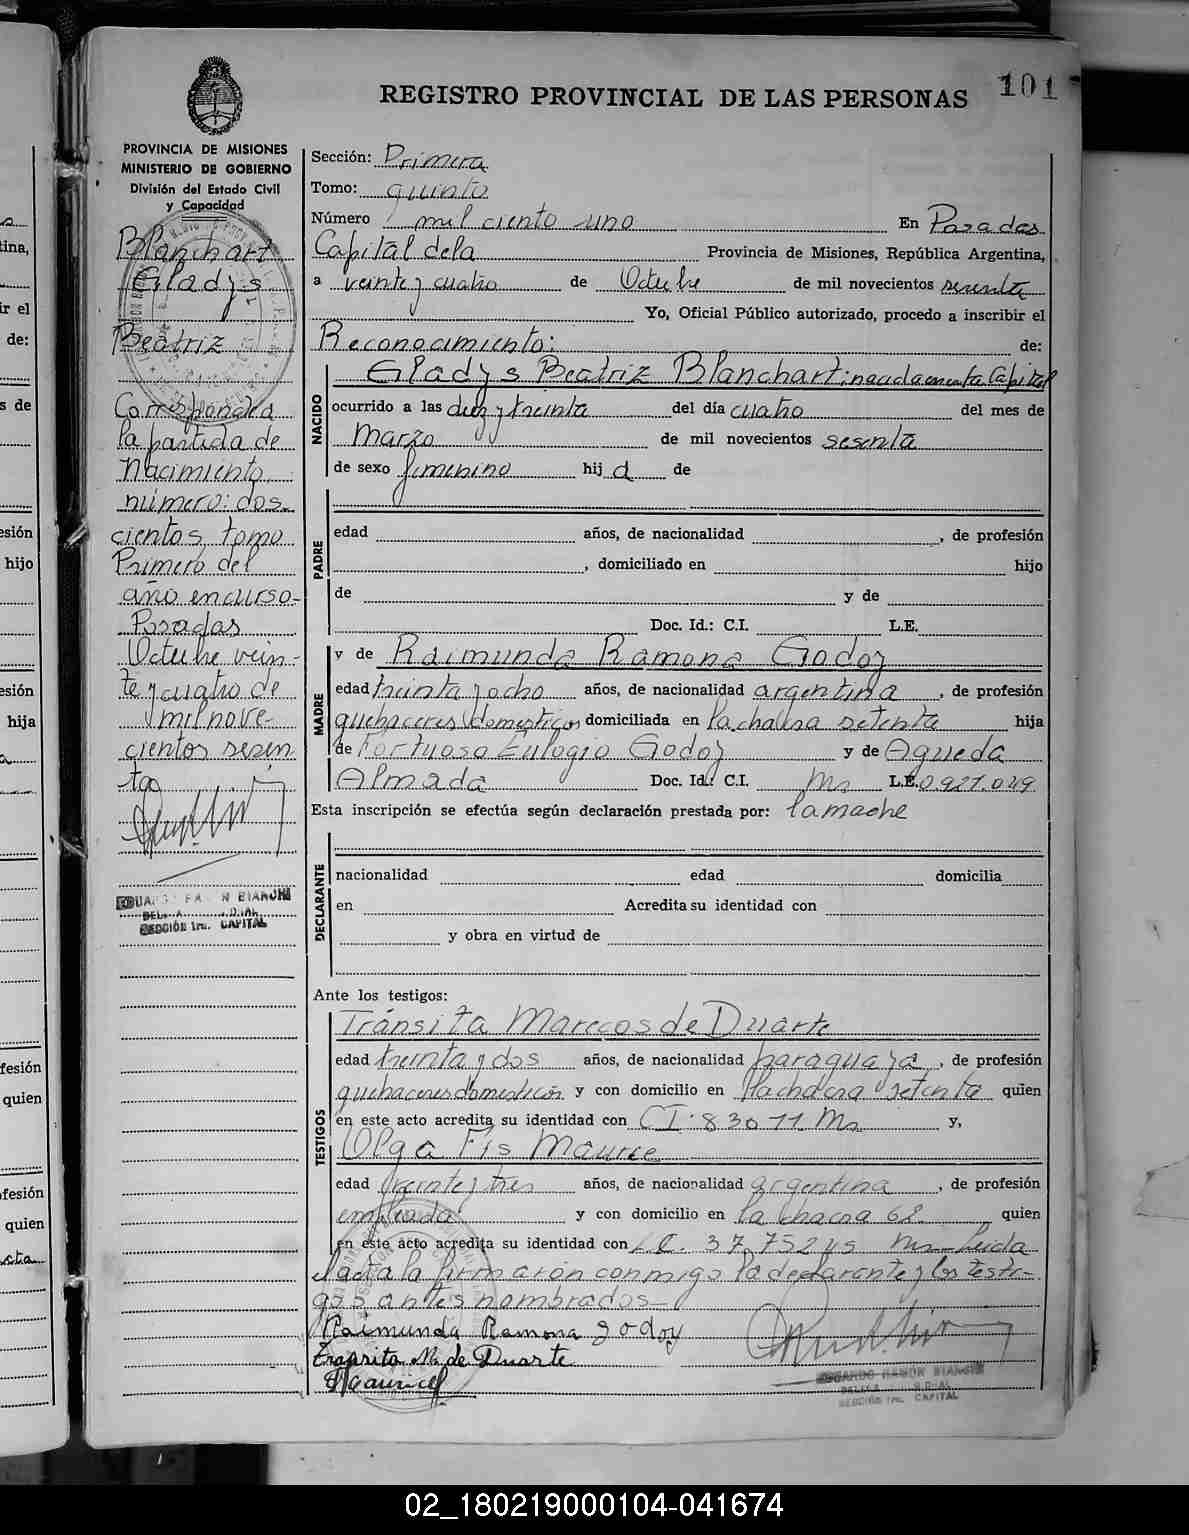 101
REGISTRO PROVINCIAL DE LAS PERSONAS
PROVINCIA DE MISIONES
MINISTERIO DE GOBIERNO
División del Estado Civil
y Capacidad
Blanchart
Gladys
Beatriz
Corresponde a
la partida de
Nacimiento
número: dos-
cientos, tomo
Primero del
año en curso-
Posadas
Octubre vein-
te y cuatro de
mil nove-
cientos sesen
ta
EDUARDO RAMON BIANCHI
SECCIÓN 1ra. CAPITAL
Sección: Primera
Tomo: quinto
Número mil ciento uno En Posadas
Capital de la Provincia de Misiones, República Argentina,
a veinte y cuatro de Octubre de mil novecientos sesenta
Yo, Oficial Público autorizado, procedo a inscribir el
Reconocimiento: de:
NACIDO
Gladys Beatriz Blanchart: nacida en esta Capital
ocurrido a las diez y treinta del día cuatro del mes de
Marzo de mil novecientos sesenta
de sexo femenino hij a de
PADRE
edad años, de nacionalidad , de profesión
, domiciliado en hijo
de y de
Doc. Id.: C.I. L.E.
MADRE
y de Raimunda Ramona Godoy
edad treinta y ocho años, de nacionalidad argentina , de profesión
quehaceres domesticos domiciliada en la chacra setenta hija
de Fortuoso Eulogio Godoy y de Agueda
Almada Doc. Id.: C.I. Ms L.E. 0.927.049
Esta inscripción se efectúa según declaración prestada por: la madre
DECLARANTE
nacionalidad edad domicilia
en Acredita su identidad con
y obra en virtud de
Ante los testigos:
TESTIGOS
Tránsita Marecos de Duarte
edad treinta y dos años, de nacionalidad paraguaya , de profesión
quehaceres domesticos y con domicilio en la chacra setenta quien
en este acto acredita su identidad con CI. 83011 Ms y,
Olga Fis Maurce
edad veinte y tres años, de nacionalidad argentina , de profesión
empleada y con domicilio en la chacra 68. quien
en este acto acredita su identidad con Ms- Leida
el acta la firmaron conmigo la declarante y los testi-
gos antes nombrados-
Raimunda Ramona godoy
Transita M. de Duarte
EDUARDO RAMON BIANCHI
SECCIÓN 1ra. CAPITAL
02_180219000104-041674